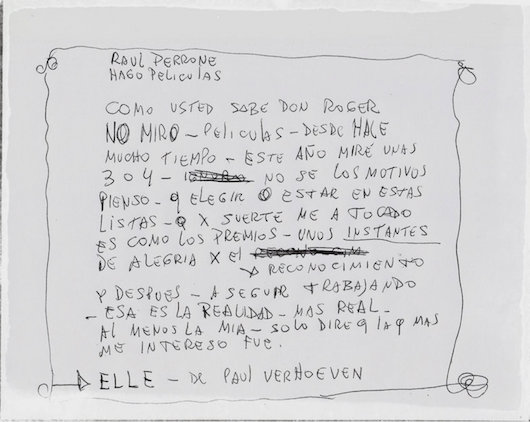 RAUL PERRONE
HAGO PELICULAS
COMO USTED SABE DON ROGER
NO MIRO - PELICULAS - DESDE HACE
MUCHO TIEMPO - ESTE AÑO MIRÉ UNAS
3 O 4 - NO SE LOS MOTIVOS
PIENSO - Q ELEGIR O ESTAR EN ESTAS
LISTAS - Q X SUERTE ME A TOCADO
ES COMO LOS PREMIOS - UNOS INSTANTES
DE ALEGRIA X El
RECONOCIMIENTO
Y DESPUES - A SEGUIR TRABAJANDO
- ESA ES LA REALIDAD - MAS REAL -
AL MENOS LA MIA - SOLO DIRE Q LA Q MAS
ME INTERESO FUE.
ELLE - DE PAUL VERHOEVEN